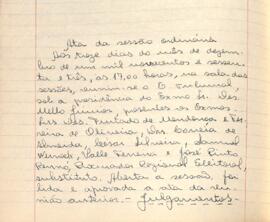 Ata da sessão ordinária
Aos treze dias do mês de dezem-
bro de um mil novecentos e sessen-
ta e três, às 17,00 horas, na sala das
sessões, reuniu-se o E. Tribunal,
sob a presidência do Exmo. Sr. Des.
Mello Júnior, presentes os Exmos.
Srs. Des. Furtado de Mendonça e Fer-
reira de Oliveira, Drs. Corrêia de
Almeida, Cesar Silveira, Samuel
Valle Ferreira e José Pinto
Procurador Regional Eleitoral,
substituto. Aberta a sessão, foi
lida e aprovada a ata da reu-
nião anterior. - Julgamentos -